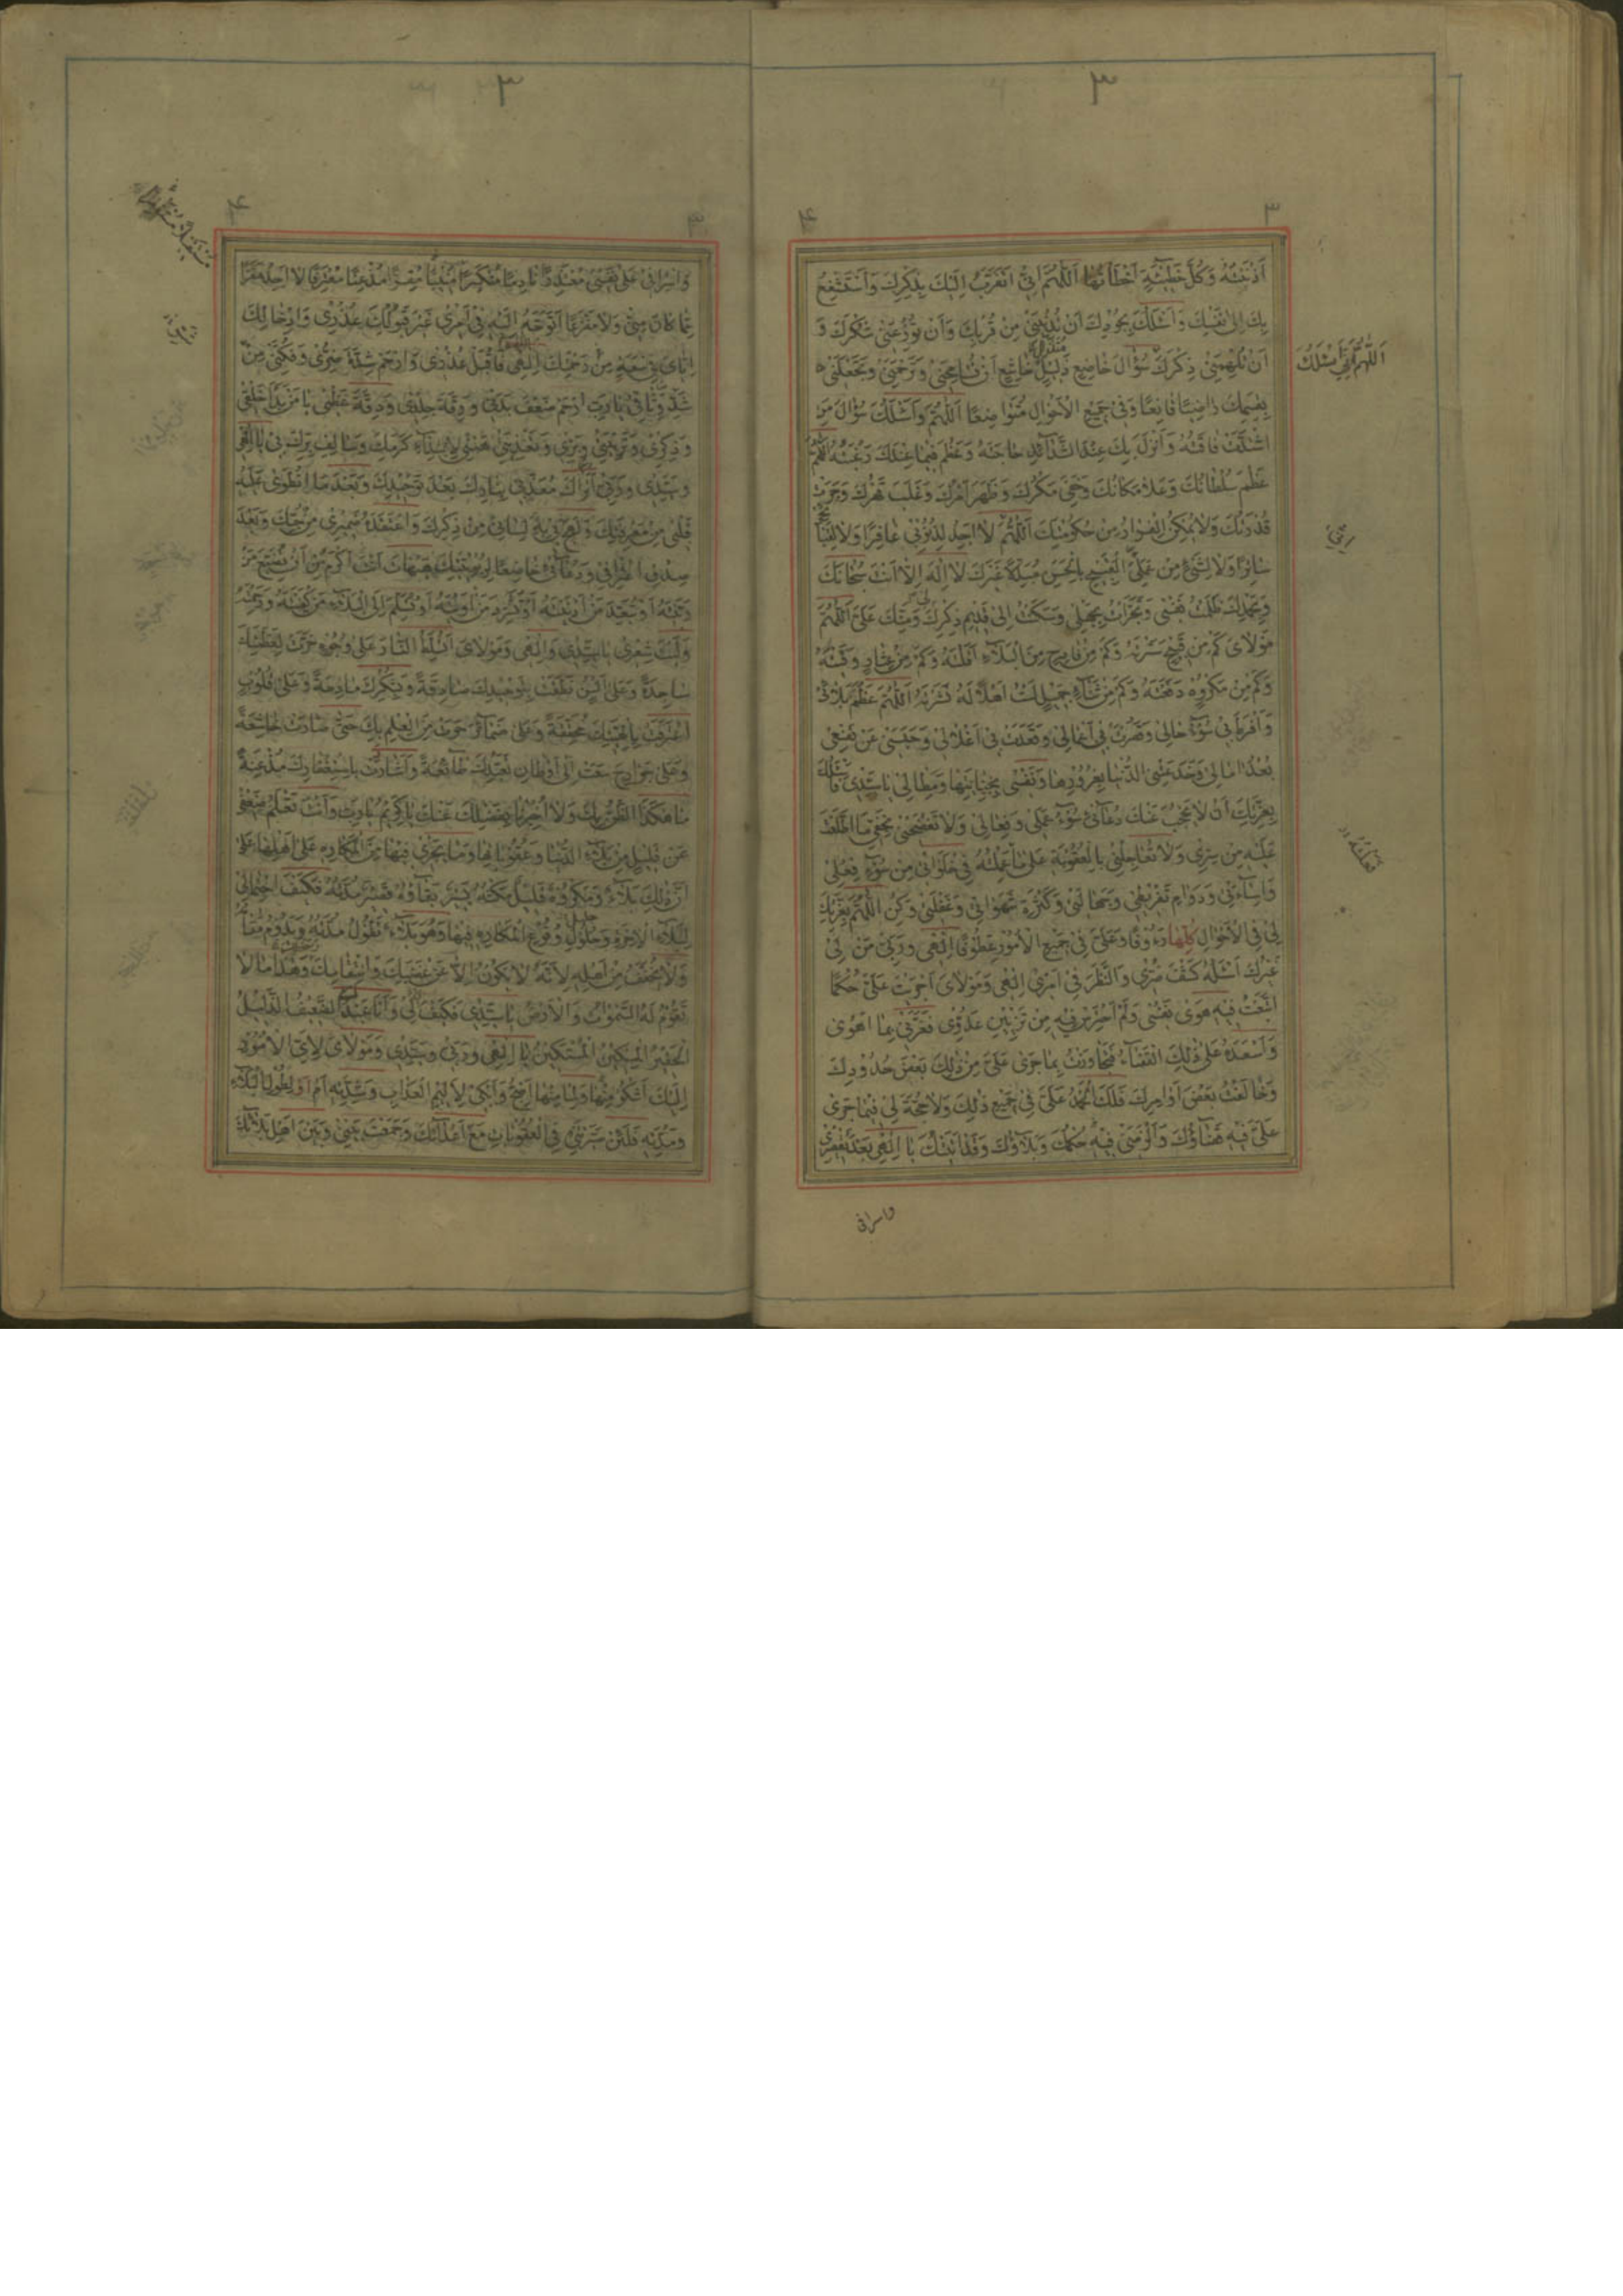 ٣
٣
٤
أَذْنَبْتُهُ وَكُلَّ خَطِيئَةٍ أَخْطَأْتُهَا اَللّٰهُمَّ اِنِّي اَتَقَرَّبُ اِلَيْكَ بِذِكْرِكَ وَاَسْتَشْفِعُ
بِكَ اِلىٰ نَفْسِكَ وَاَسْئَلُكَ بِجُودِكَ اَنْ تُدْنِيَنِي مِنْ قُرْبِكَ وَاَنْ تُوزِعَنِي شُكْرَكَ وَ
اَللّٰهُمَّ اِنِّي اَسْئَلُكَ
اَنْ تُلْهِمَنِي ذِكْرَكَ سُؤَالَ خَاضِعٍ ذَلِيلٍ خَاشِعٍ اَنْ تُسَامِحَنِي وَتَرْحَمَنِي وَتَجْعَلَنِي
بِقِسْمِكَ رَاضِيًا قَانِعًا وَفِي جَمِيعِ الْاَحْوَالِ مُتَوَاضِعًا اَللّٰهُمَّ وَاَسْئَلُكَ سُؤَالَ مَنِ
اشْتَدَّتْ فَاقَتُهُ وَاَنْزَلَ بِكَ عِنْدَ الشَّدَائِدِ حَاجَتَهُ وَعَظُمَ فِيمَا عِنْدَكَ رَغْبَتُهُ اَللّٰهُمَّ
عَظُمَ سُلْطَانُكَ وَعَلَا مَكَانُكَ وَخَفِيَ مَكْرُكَ وَظَهَرَ اَمْرُكَ وَغَلَبَ قَهْرُكَ وَجَرَتْ
قُدْرَتُكَ وَلَا يُمْكِنُ الْفِرَارُ مِنْ حُكُومَتِكَ اَللّٰهُمَّ لَا اَجِدُ لِذُنُوبِي غَافِرًا وَلَا لِقَبَائِحِي
سَاتِرًا وَلَا لِشَيْءٍ مِنْ عَمَلِيَ الْقَبِيحِ بِالْحَسَنِ مُبَدِّلًا غَيْرَكَ لَا اِلٰهَ اِلَّا اَنْتَ سُبْحَانَكَ
وَبِحَمْدِكَ ظَلَمْتُ نَفْسِي وَتَجَرَّأْتُ بِجَهْلِي وَسَكَنْتُ اِلىٰ قَدِيمِ ذِكْرِكَ لِي وَمَنِّكَ عَلَيَّ اَللّٰهُمَّ
مَوْلَايَ كَمْ مِنْ قَبِيحٍ سَتَرْتَهُ وَكَمْ مِنْ فَادِحٍ مِنَ الْبَلَاءِ اَقَلْتَهُ وَكَمْ مِنْ عِثَارٍ وَقَيْتَهُ
وَكَمْ مِنْ مَكْرُوهٍ دَفَعْتَهُ وَكَمْ مِنْ ثَنَاءٍ جَمِيلٍ لَسْتُ اَهْلًا لَهُ نَشَرْتَهُ اَللّٰهُمَّ عَظُمَ بَلَائِي
وَاَفْرَطَ بِي سُوءُ حَالِي وَقَصُرَتْ بِي اَعْمَالِي وَقَعَدَتْ بِي اَغْلَالِي وَحَبَسَنِي عَنْ نَفْعِي
بُعْدُ اٰمَالِي وَخَدَعَتْنِي الدُّنْيَا بِغُرُورِهَا وَنَفْسِي بِخِيَانَتِهَا وَمِطَالِي يَا سَيِّدِي فَاَسْئَلُكَ
بِعِزَّتِكَ اَنْ لَا يَحْجُبَ عَنْكَ دُعَائِي سُوءُ عَمَلِي وَفِعَالِي وَلَا تَفْضَحْنِي بِخَفِيِّ مَا اطَّلَعْتَ
عَلَيْهِ مِنْ سِرِّي وَلَا تُعَاجِلْنِي بِالْعُقُوبَةِ عَلىٰ مَا عَمِلْتُهُ فِي خَلَوَاتِي مِنْ سُوءِ فِعْلِي
وَاِسَاءَتِي وَدَوَامِ تَفْرِيطِي وَجَهَالَتِي وَكَثْرَةِ شَهَوَاتِي وَغَفْلَتِي وَكُنِ اللّٰهُمَّ بِعِزَّتِكَ
لِي فِي الْاَحْوَالِ كُلِّهَا رَءُوفًا وَعَلَيَّ فِي جَمِيعِ الْاُمُورِ عَطُوفًا اِلٰهِي وَرَبِّي مَنْ لِي
غَيْرُكَ اَسْئَلُهُ كَشْفَ ضُرِّي وَالنَّظَرَ فِي اَمْرِي اِلٰهِي وَمَوْلَايَ اَجْرَيْتَ عَلَيَّ حُكْمًا
اتَّبَعْتُ فِيهِ هَوىٰ نَفْسِي وَلَمْ اَحْتَرِسْ فِيهِ مِنْ تَزْيِينِ عَدُوِّي فَغَرَّنِي بِمَا اَهْوىٰ
وَاَسْعَدَهُ عَلىٰ ذٰلِكَ الْقَضَاءُ فَتَجَاوَزْتُ بِمَا جَرىٰ عَلَيَّ مِنْ ذٰلِكَ بَعْضَ حُدُودِكَ
وَخَالَفْتُ بَعْضَ اَوَامِرِكَ فَلَكَ الْحَمْدُ عَلَيَّ فِي جَمِيعِ ذٰلِكَ وَلَا حُجَّةَ لِي فِيمَا جَرىٰ
عَلَيَّ فِيهِ قَضَاؤُكَ وَاَلْزَمَنِي فِيهِ حُكْمُكَ وَبَلَاؤُكَ وَقَدْ اَتَيْتُكَ يَا اِلٰهِي بَعْدَ تَقْصِيرِي
واسرافی
٣
٤
٣
وَاِسْرَافِي عَلىٰ نَفْسِي مُعْتَذِرًا نَادِمًا مُنْكَسِرًا مُنِيبًا مُقِرًّا مُذْعِنًا مُعْتَرِفًا لَا اَجِدُ مَفَرًّا
مِمَّا كَانَ مِنِّي وَلَا مَفْزَعًا اَتَوَجَّهُ اِلَيْهِ فِي اَمْرِي غَيْرَ قَبُولِكَ عُذْرِي وَاِدْخَالِكَ
اِيَّايَ فِي سَعَةٍ مِنْ رَحْمَتِكَ اِلٰهِي فَاقْبَلْ عُذْرِي وَارْحَمْ شِدَّةَ ضُرِّي وَفُكَّنِي مِنْ
شَدِّ وَثَاقِي يَا رَبِّ ارْحَمْ ضَعْفَ بَدَنِي وَرِقَّةَ جِلْدِي وَدِقَّةَ عَظْمِي يَا مَنْ بَدَأَ خَلْقِي
وَذِكْرِي وَتَرْبِيَتِي وَبِرِّي وَتَغْذِيَتِي هَبْنِي لِابْتِدَاءِ كَرَمِكَ وَسَالِفِ بِرِّكَ بِي يَا اِلٰهِي
وَسَيِّدِي وَرَبِّي اَتُرَاكَ مُعَذِّبِي بِنَارِكَ بَعْدَ تَوْحِيدِكَ وَبَعْدَ مَا انْطَوىٰ عَلَيْهِ
قَلْبِي مِنْ مَعْرِفَتِكَ وَلَهِجَ بِهِ لِسَانِي مِنْ ذِكْرِكَ وَاعْتَقَدَهُ ضَمِيرِي مِنْ حُبِّكَ وَبَعْدَ
صِدْقِ اعْتِرَافِي وَدُعَائِي خَاضِعًا لِرُبُوبِيَّتِكَ هَيْهَاتَ اَنْتَ اَكْرَمُ مِنْ اَنْ تُضَيِّعَ مَنْ
رَبَّيْتَهُ اَوْ تُبَعِّدَ مَنْ اَدْنَيْتَهُ اَوْ تُشَرِّدَ مَنْ اٰوَيْتَهُ اَوْ تُسَلِّمَ اِلَى الْبَلَاءِ مَنْ كَفَيْتَهُ وَرَحِمْتَهُ
وَلَيْتَ شِعْرِي يَا سَيِّدِي وَاِلٰهِي وَمَوْلَايَ اَتُسَلِّطُ النَّارَ عَلىٰ وُجُوهٍ خَرَّتْ لِعَظَمَتِكَ
سَاجِدَةً وَعَلىٰ اَلْسُنٍ نَطَقَتْ بِتَوْحِيدِكَ صَادِقَةً وَبِشُكْرِكَ مَادِحَةً وَعَلىٰ قُلُوبٍ
اعْتَرَفَتْ بِاِلٰهِيَّتِكَ مُحَقِّقَةً وَعَلىٰ ضَمَائِرَ حَوَتْ مِنَ الْعِلْمِ بِكَ حَتّىٰ صَارَتْ خَاشِعَةً
وَعَلىٰ جَوَارِحَ سَعَتْ اِلىٰ اَوْطَانِ تَعَبُّدِكَ طَائِعَةً وَاَشَارَتْ بِاسْتِغْفَارِكَ مُذْعِنَةً
مَا هٰكَذَا الظَّنُّ بِكَ وَلَا اُخْبِرْنَا بِفَضْلِكَ عَنْكَ يَا كَرِيمُ يَا رَبِّ وَاَنْتَ تَعْلَمُ ضَعْفِي
عَنْ قَلِيلٍ مِنْ بَلَاءِ الدُّنْيَا وَعُقُوبَاتِهَا وَمَا يَجْرِي فِيهَا مِنَ الْمَكَارِهِ عَلىٰ اَهْلِهَا عَلىٰ
اَنَّ ذٰلِكَ بَلَاءٌ وَمَكْرُوهٌ قَلِيلٌ مَكْثُهُ يَسِيرٌ بَقَاؤُهُ قَصِيرٌ مُدَّتُهُ فَكَيْفَ احْتِمَالِي
لِبَلَاءِ الْاٰخِرَةِ وَحُلُولِ وُقُوعِ الْمَكَارِهِ فِيهَا وَهُوَ بَلَاءٌ تَطُولُ مُدَّتُهُ وَيَدُومُ مَقَامُهُ
وَلَا يُخَفَّفُ عَنْ اَهْلِهِ لِاَنَّهُ لَا يَكُونُ اِلَّا عَنْ غَضَبِكَ وَانْتِقَامِكَ وَهٰذَا مَا لَا
تَقُومُ لَهُ السَّمٰوَاتُ وَالْاَرْضُ يَا سَيِّدِي فَكَيْفَ لِي وَاَنَا عَبْدُكَ الضَّعِيفُ الذَّلِيلُ
الْحَقِيرُ الْمِسْكِينُ الْمُسْتَكِينُ يَا اِلٰهِي وَرَبِّي وَسَيِّدِي وَمَوْلَايَ لِاَيِّ الْاُمُورِ
اِلَيْكَ اَشْكُو وَلِمَا مِنْهَا اَضِجُّ وَاَبْكِي لِاَلِيمِ الْعَذَابِ وَشِدَّتِهِ اَمْ لِطُولِ الْبَلَاءِ
وَمُدَّتِهِ فَلَئِنْ صَيَّرْتَنِي فِي الْعُقُوبَاتِ مَعَ اَعْدَائِكَ وَجَمَعْتَ بَيْنِي وَبَيْنَ اَهْلِ بَلَائِكَ